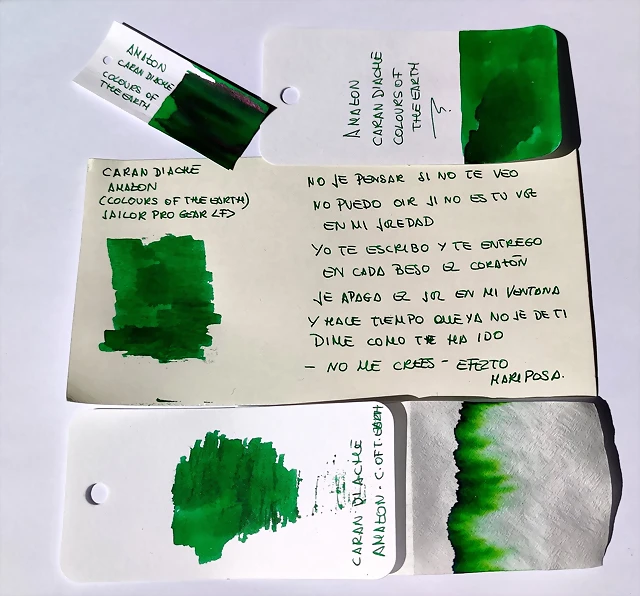 AMAZON
CARAN D'ACHE
COLOURS OF
THE EARTH
AMAZON
CARAN DIACHE
COLOURS OF
THE EARTH
CARAN DIACHE
AMAZON
(COLOURS OF THE EARTH)
SAILOR PRO GEAR <F>
NO SE PENSAR SI NO TE VEO
NO PUEDO OIR SI NO ES TU VOZ
EN MI SOLEDAD
YO TE ESCRIBO Y TE ENTREGO
EN CADA BESO EL CORAZÓN
SE APAGA EL SOL EN MI VENTANA
Y HACE TIEMPO QUE YA NO SE DE TI
DIME COMO TE HA IDO
- NO ME CREES - EFECTO
MARIPOSA.
CARAN DIACHE
AMAZON - C. OF T. EARTH